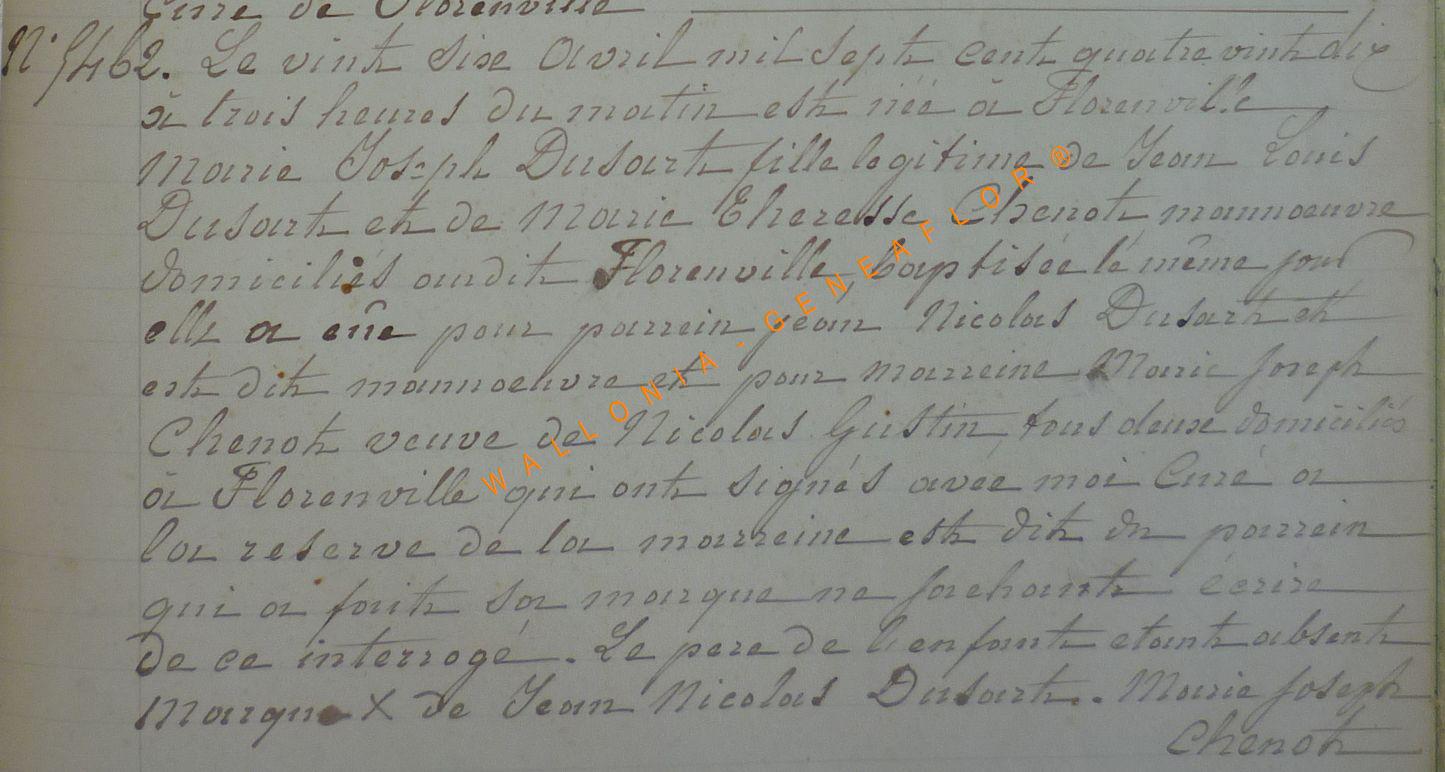 Curé de Florenville
N° 5462. Le vint six Avril mil sept cent quatre vint dix
à trois heures du matin est née à Florenville
Marie Joseph Dusart fille legitime de Jean Louis
Dusart et de Marie Theresse Chenot mannoeuvre
domiciliés audit Florenville baptisée le même jour
elle a eûe pour parrein jean Nicolas Dusart et
est dit mannoeuvre et pour marreine Marie Joseph
Chenot veuve de Nicolas Gustin tous deux domiciliés
à Florenville qui ont signés avée moi Curé a
la reserve de la marreine est dit du parrein
qui a fait sa marque ne sachant écrire
de ce interrogé. Le pere de l'enfant etant absent
Marque X de Jean Nicolas Dusart. Marie Joseph
Chenot
WALLONIA - GENEAFLOR ®